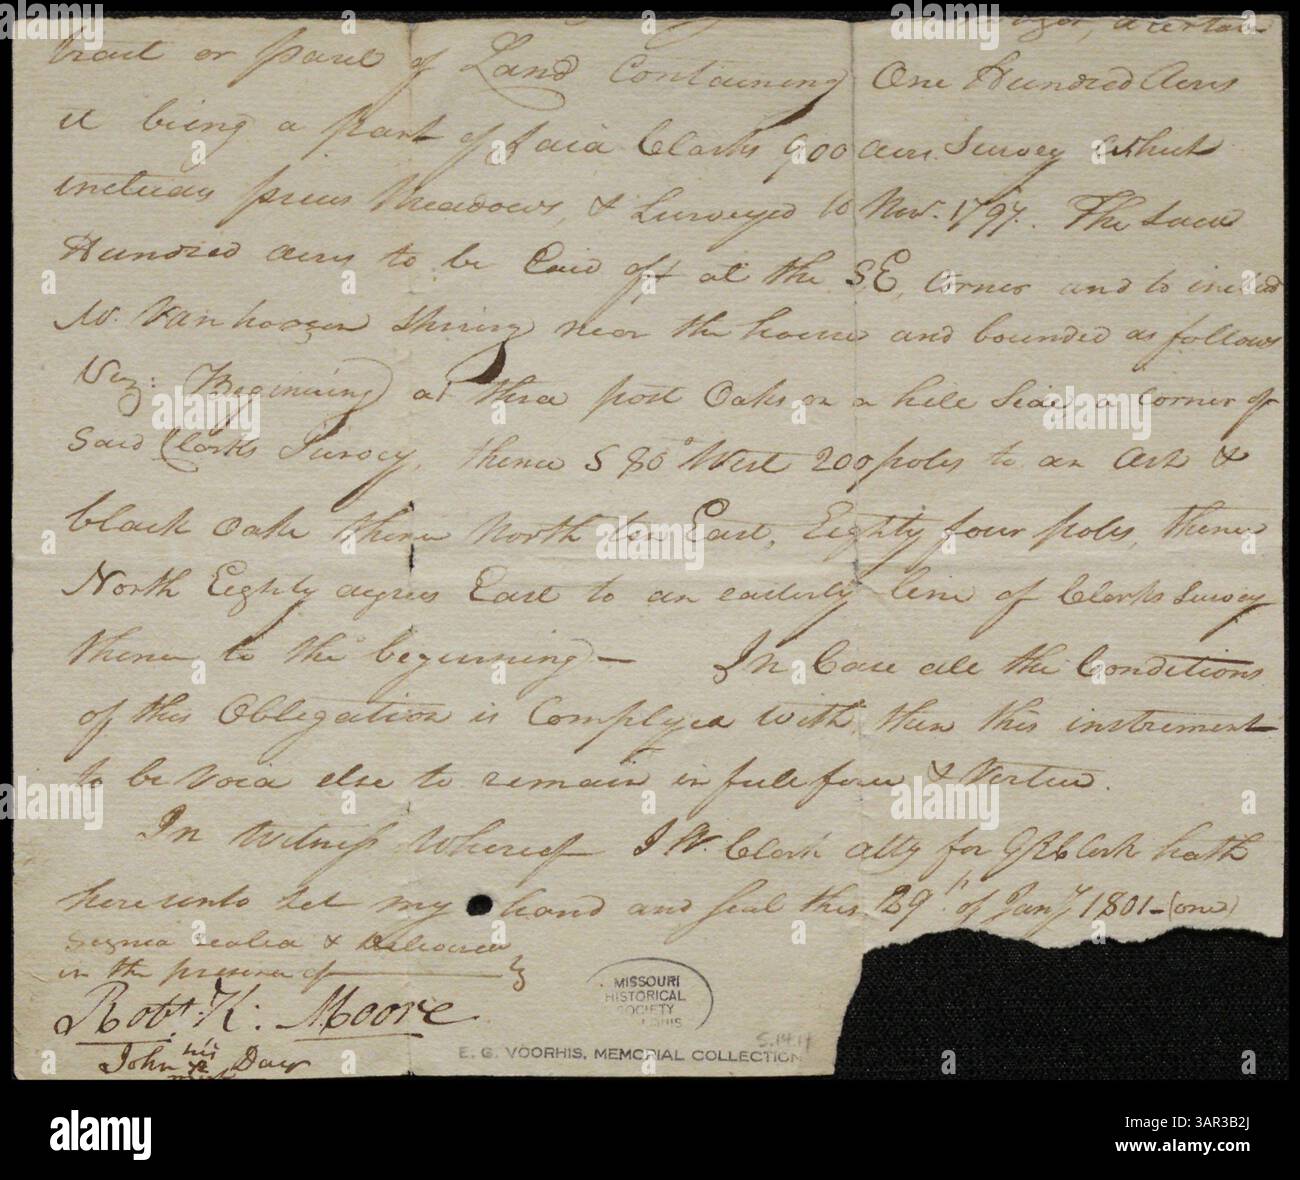 a certain
tract or parcel of Land Containing One Hundred Acres
it being a part of said Clarks 900 acres Survey which
includes Meadows, & Surveyed 10 Nov. 1797. The said
Hundred acres to be laid off at the SE, Corner and to include
W. Vanhoozer Spring near the house and bounded as follows
Viz: Beginning at three post Oaks on a hill side, a corner of
said Clarks Survey, thence S 80° West 200 poles to an Ash &
black Oak thence North ten East, Eighty four poles, thence
North Eighty degrees East to an easterly line of Clarks Survey
thence to the beginning — In Case all the Conditions
of this Obligation is Complyed with, then this instrement
to be Void else to remain in full force & Vertue.
In Witness Whereof I W. Clark atty for G R Clark hath
here unto set my hand and seal this 29th. of Jany 1801 - (one)
Signed sealed & Delivered
in the presence of
Robt. K. Moore
his
John x Day
mark
MISSOURI
HISTORICAL
SOCIETY
LOUIS
S.14.11
E. G. VOORHIS, MEMORIAL COLLECTION
alamy
Image ID: 3AR3B2J
www.alamy.com